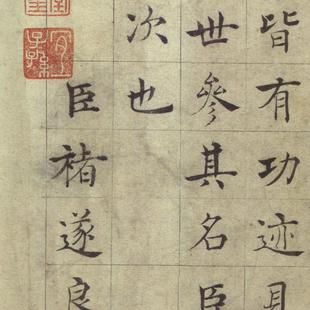 皆有功迹見
世參其名臣
次也
臣褚遂良